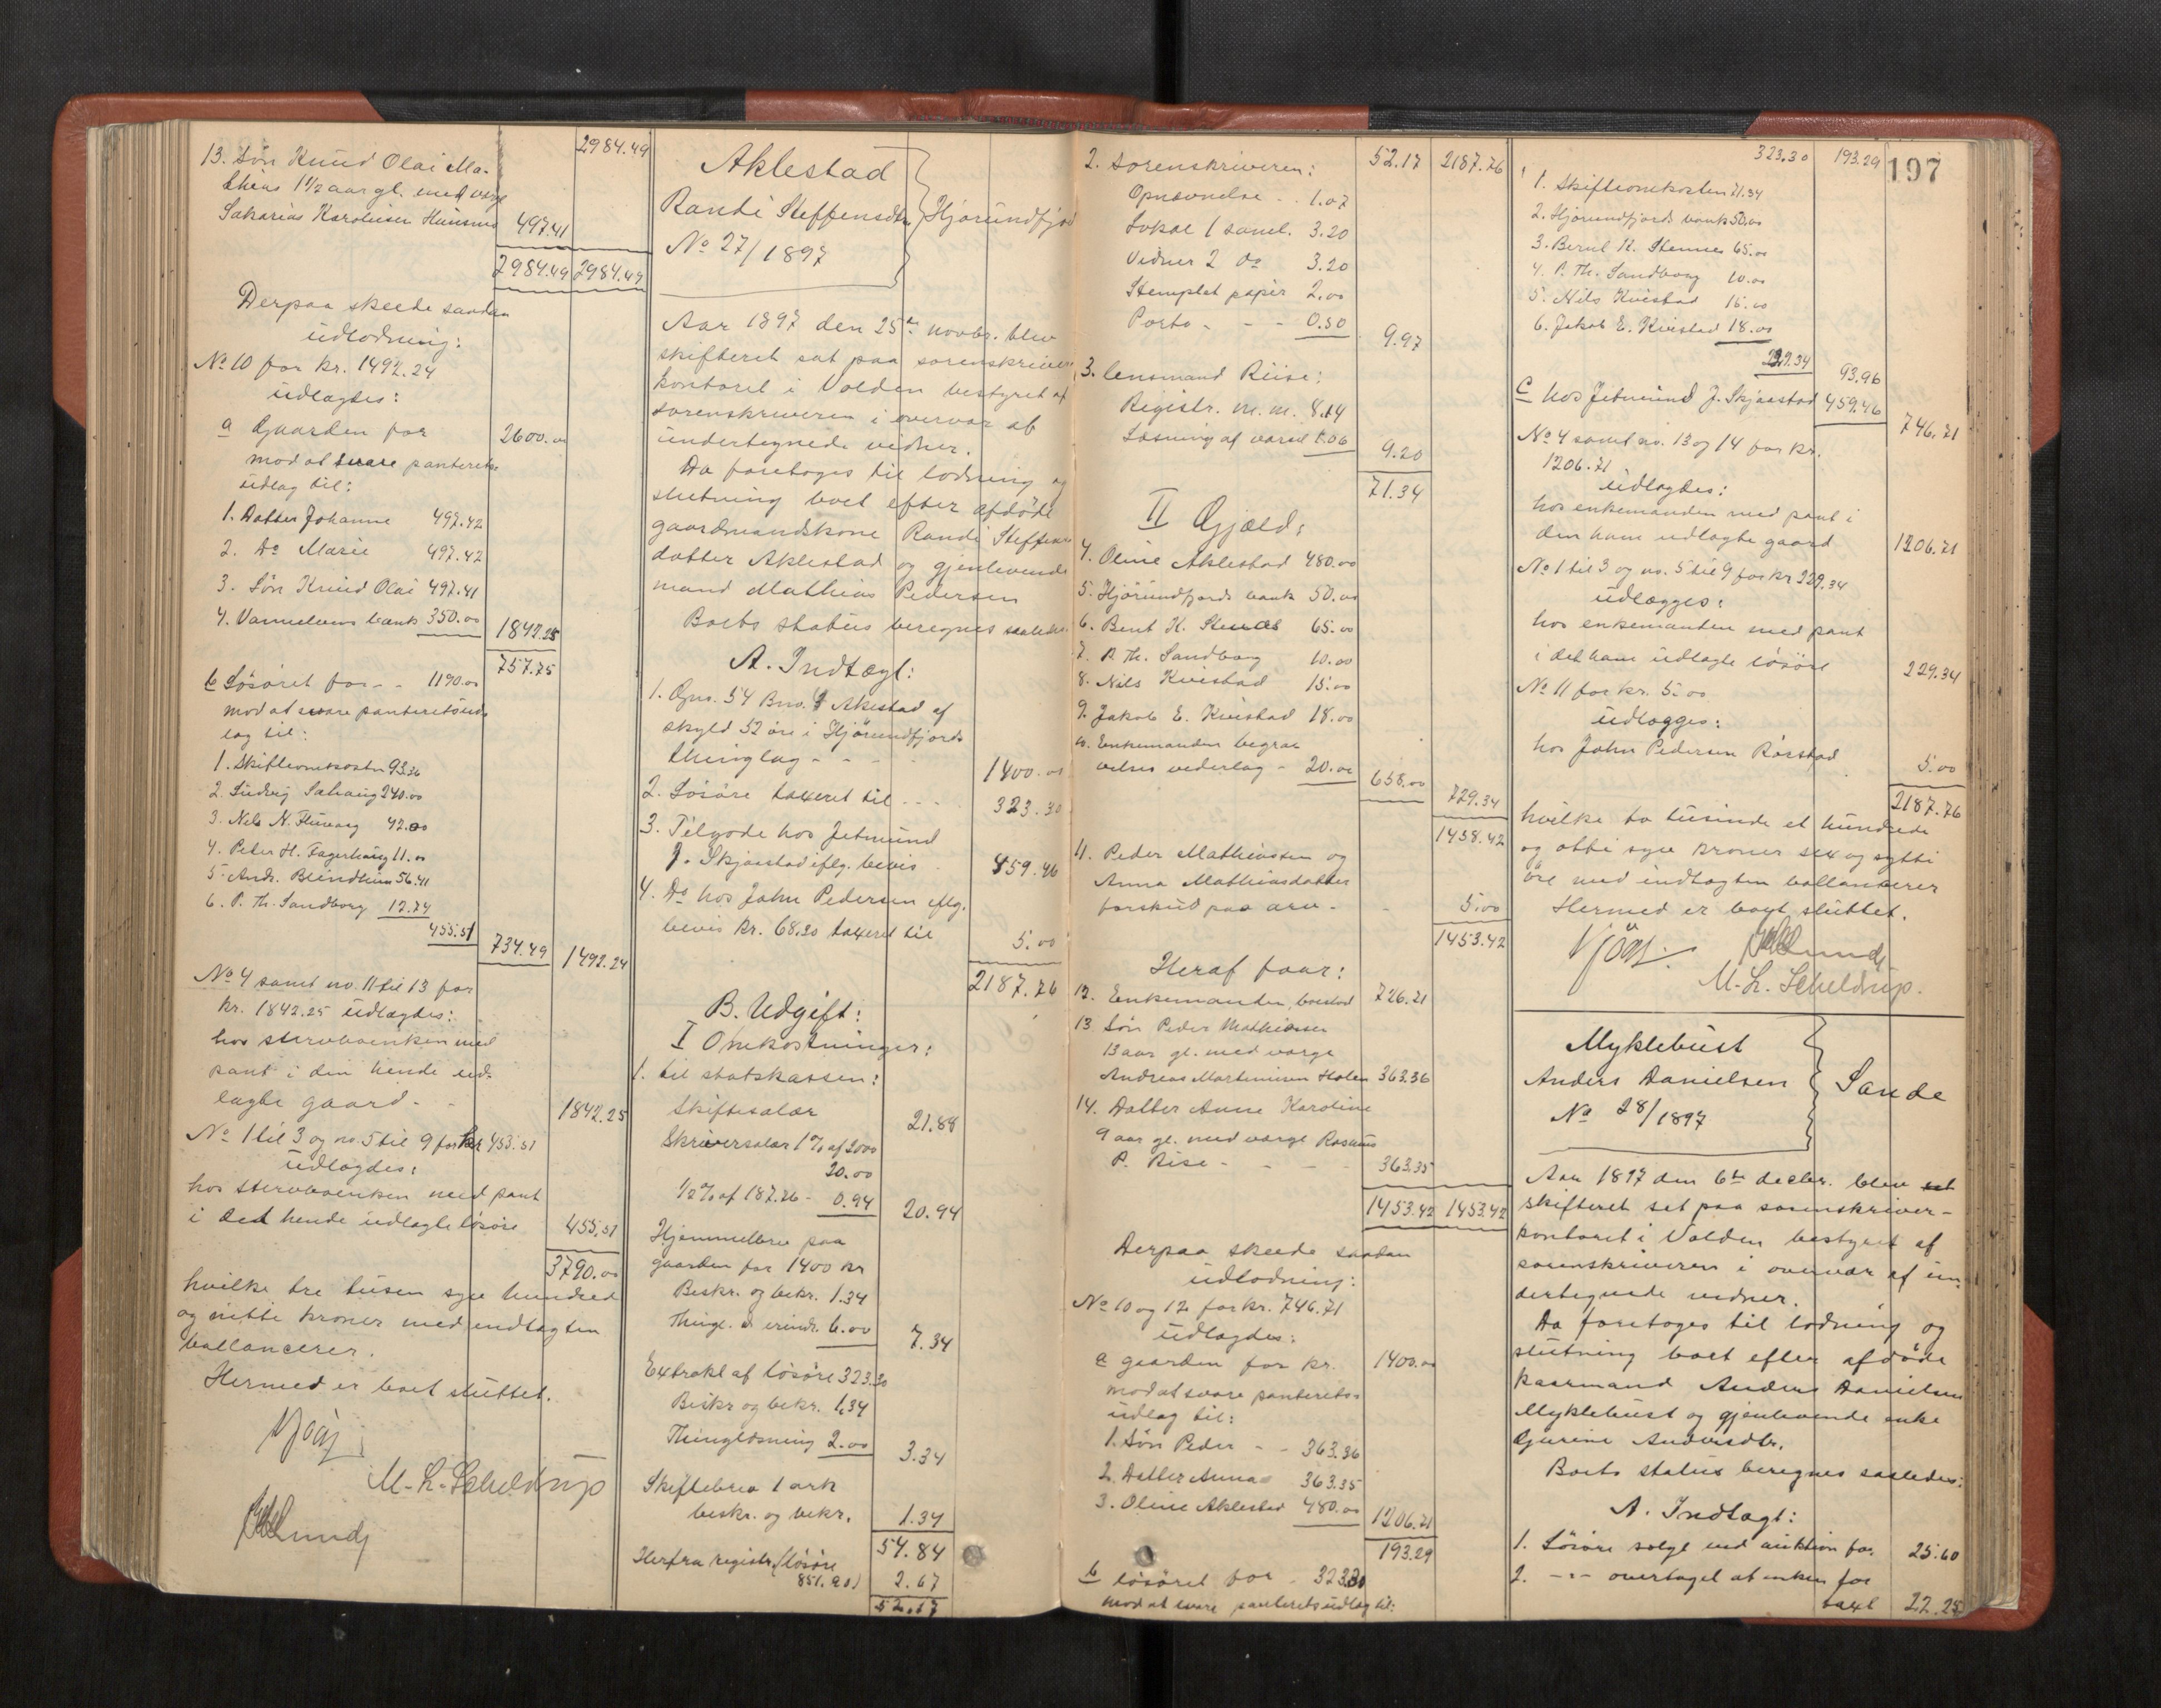 2984.49
13. Søn Knud Olai Ma-
thias 1½ aar gl. med verge
Sakarias Karolussen Hunsnes 497.41
2984.49 2984.49
Derpaa skeede saadan
udlodning:
No 10 for kr. 1492.24
udlagdes:
a Gaarden for 2600.00
mod at svare panterets-
udlag til:
1. Datter Johanne 497.42
2. Do Marie 497.42
3. Søn Knud Olai 497.41
4. Vannelvens bank 350.00 1842.25
757.75
b Løsøret for - - 1190.00
mod at svare panteretsud-
lag til:
1. Skifteomkostn 93.36
2. Ludvig Sæhaug 240.00
3. Nils N. 42.00
4. Peter H. Fagerhaug 11.00
5. Andr. Blindheim 56.41
6. P. Th. Sandborg 12.74
455.51 734.49 1492.24
No 4 samt no. 11 til 13 for
kr. 1842.25 udlagdes:
hos stervboenken med
pant i den hende ud-
lagte gaard - - 1842.25
No 1 til 3 og no. 5 til 9 for kr 455.51
udlagdes:
hos stervboenken med pant
i det hende udlagte løsøre 455.51
3790.00
hvilke tre tusen syv hundred
og nitti kroner med indtægten
ballancerer.
Hermed er boet sluttet.
M. L. Scheldrup
Lund
Aklestad
Randi Steffensdtr Hjørundfjord
No 27/1897
Aar 1897 den 25de novbr. blev
skifteret sat paa sorenskriver
kontoret i Volden bestyret af
sorenskriveren i overvær af
undertegnede vidner.
Da foretoges til lodning og
slutning boet efter afdøde
gaardmandskone Randi Steffens
datter Aklestad og gjenlevende
mand Mathias Pedersen
Boets status beregnes saaledes:
A. Indtægt:
1. Gno. 54 Bno. 9 Aklestad af
skyld 52 øre i Hjørundfjords
thinglag - - - 1400.00
2. Løsøre taxeret til - - - 323.30
3. Tilgode hos Jetmund
J. Skjaastad iflg. bevis 459.46
4. Do hos John Pedersen iflg.
bevis kr. 68.20 taxeret til 5.00
2187.76
B. Udgift:
I Omkostninger:
1. til statskassen:
Skiftesalær 21.88
Skriversalær 1% af 2000
20.00
1/2% af 187.76 - 0.94 20.94
Hjemmelbrev paa
gaarden for 1400 kr
Beskr. og bekr. 1.34
Thingl. & erindr. 6.00 7.34
Extrakt af løsøre 323.30
Beskr og bekr. 1.34
Thinglæsning 2.00 3.34
Skiftebrev 1 ark
beskr. og bekr. 1.34
54.84
Herfra registr. (løsøre
851.90) 2.67
52.17
2. Sorenskriveren: 52.17 2187.76
Opnævnelse - - 1.07
Lokal 1 saml. 3.20
Vidner 2 do 3.20
Stemplet papir 2.00
Porto - - - 0.50 9.97
3. Lensmand Riise:
Registr. m. m. 8.14
Læsning af varsel 1.06 9.20
71.34
II Gjæld:
4. Oline Aklestad 480.00
5. Hjørundfjords bank 50.00
6. Bent K. Stenes 65.00
7. P. Th. Sandborg 10.00
8. Nils Kvistad 15.00
9. Jakob E. Kvistad 18.00
10. Enkemanden begrav
velses vederlag - 20.00 658.00 729.34
1458.42
11. Peder Mathiassen og
Anna Mathiasdatter
forskud paa arv - - 5.00
1453.42
Heraf faar:
12. Enkemanden, boeslod 726.71
13. Søn Peder Mathiassen
13 aar gl. med værge
Andreas Martinusen Holen 363.36
14. Datter Anne Karoline
9 aar gl. med værge Rasmus
P. Rise - - - 363.35
1453.42 1453.42
Derpaa skeede saadan
udlodning:
No 10 og 12 for kr. 746.71
udlagdes:
a gaarden for kr. 1400.00
mod at svare panterets-
udlag til:
1. Søn Peder - - 363.36
2. Datter Anna 363.35
3. Oline Aklestad 480.00 1206.71
193.29
b løsøret for - 323.30
mod at svare panteretsudlag til:
323.30 193.29 197
1. Skifteomkosten 71.34
2. Hjørundfjords bank 50.00
3. Bernt K. Stennes 65.00
4. P. Th. Sandborg 10.00
5. Nils Kvistad 15.00
6. Jakob E. Kvistad 18.00
229.34 93.96
c hos Jetmund J. Skjaastad 459.46 746.71
No 4 samt no. 13 og 14 for kr.
1206.71
udlagdes:
hos enkemanden med pant i
den ham udlagte gaard 1206.71
No 1 til 3 og no. 5 til 9 for kr 229.34
udlægges:
hos enkemanden med pant
i det ham udlagte løsøre 229.34
No 11 for kr. 5.00
udlægges:
hos John Pedersen Rørstad 5.00
2187.76
hvilke to tusinde et hundrede
og otti syv kroner sex og sytti
øre med indtægten ballancerer
Hermed er boet sluttet.
Lund
M. L. Scheldrup.
Myklebust
Anders Danielsen Sande
No 28/1897
Aar 1897 den 6te decbr. blev
skifteret sat paa sorenskriver-
kontoret i Volden bestyret af
sorenskriveren i overvær af un-
dertegnede vidner.
Da foretoges til lodning og
slutning boet efter afdøde
kaarmand Anders Danielsen
Myklebust og gjenlevende enke
Gurine Andersdtr.
Boets status beregnes saaledes:
A. Indtægt:
1. Løsøre solgt ved auktion for 25.60
2. -"- overtaget af enken for
taxt 22.25